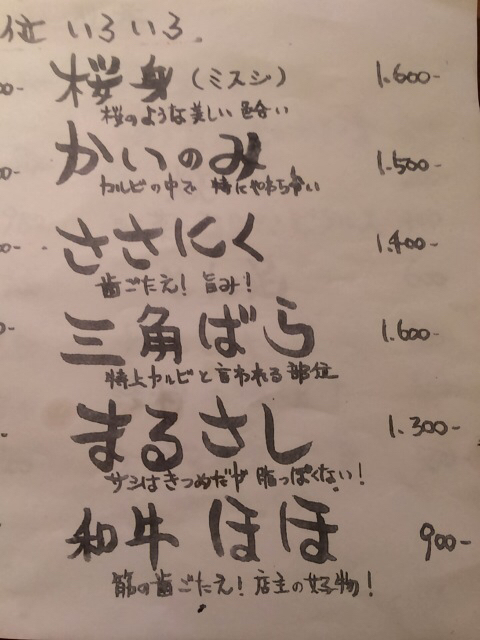 位 いろいろ
桜身(ミスジ) 1.600-
桜のような美しい色合い
かいのみ 1.500-
カルビの中で特にやわらかい
ささにく 1.400-
歯ごたえ!旨み!
三角ばら 1.600-
特上カルビと言われる部位
まるさし 1.300-
サシはきつめだが脂っぽくない!
和牛ほほ 900-
筋の歯ごたえ!店主の好物!